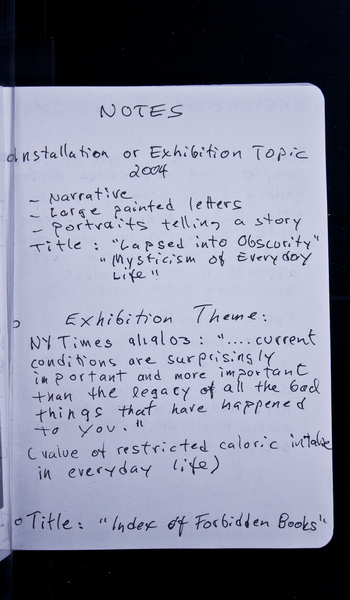 NOTES
Installation or Exhibition Topic
2004
- Narrative
- Large painted letters
- portraits telling a story
Title : "Lapsed into Obscurity"
"Mysticism of Everyday
Life"
Exhibition Theme:
NY Times 9/19/03 : ".... current
conditions are surprisingly
important and more important
than the legacy of all the bad
things that have happened
to you."
(value of restricted caloric intake
in everyday life)
Title: "Index of Forbidden Books"